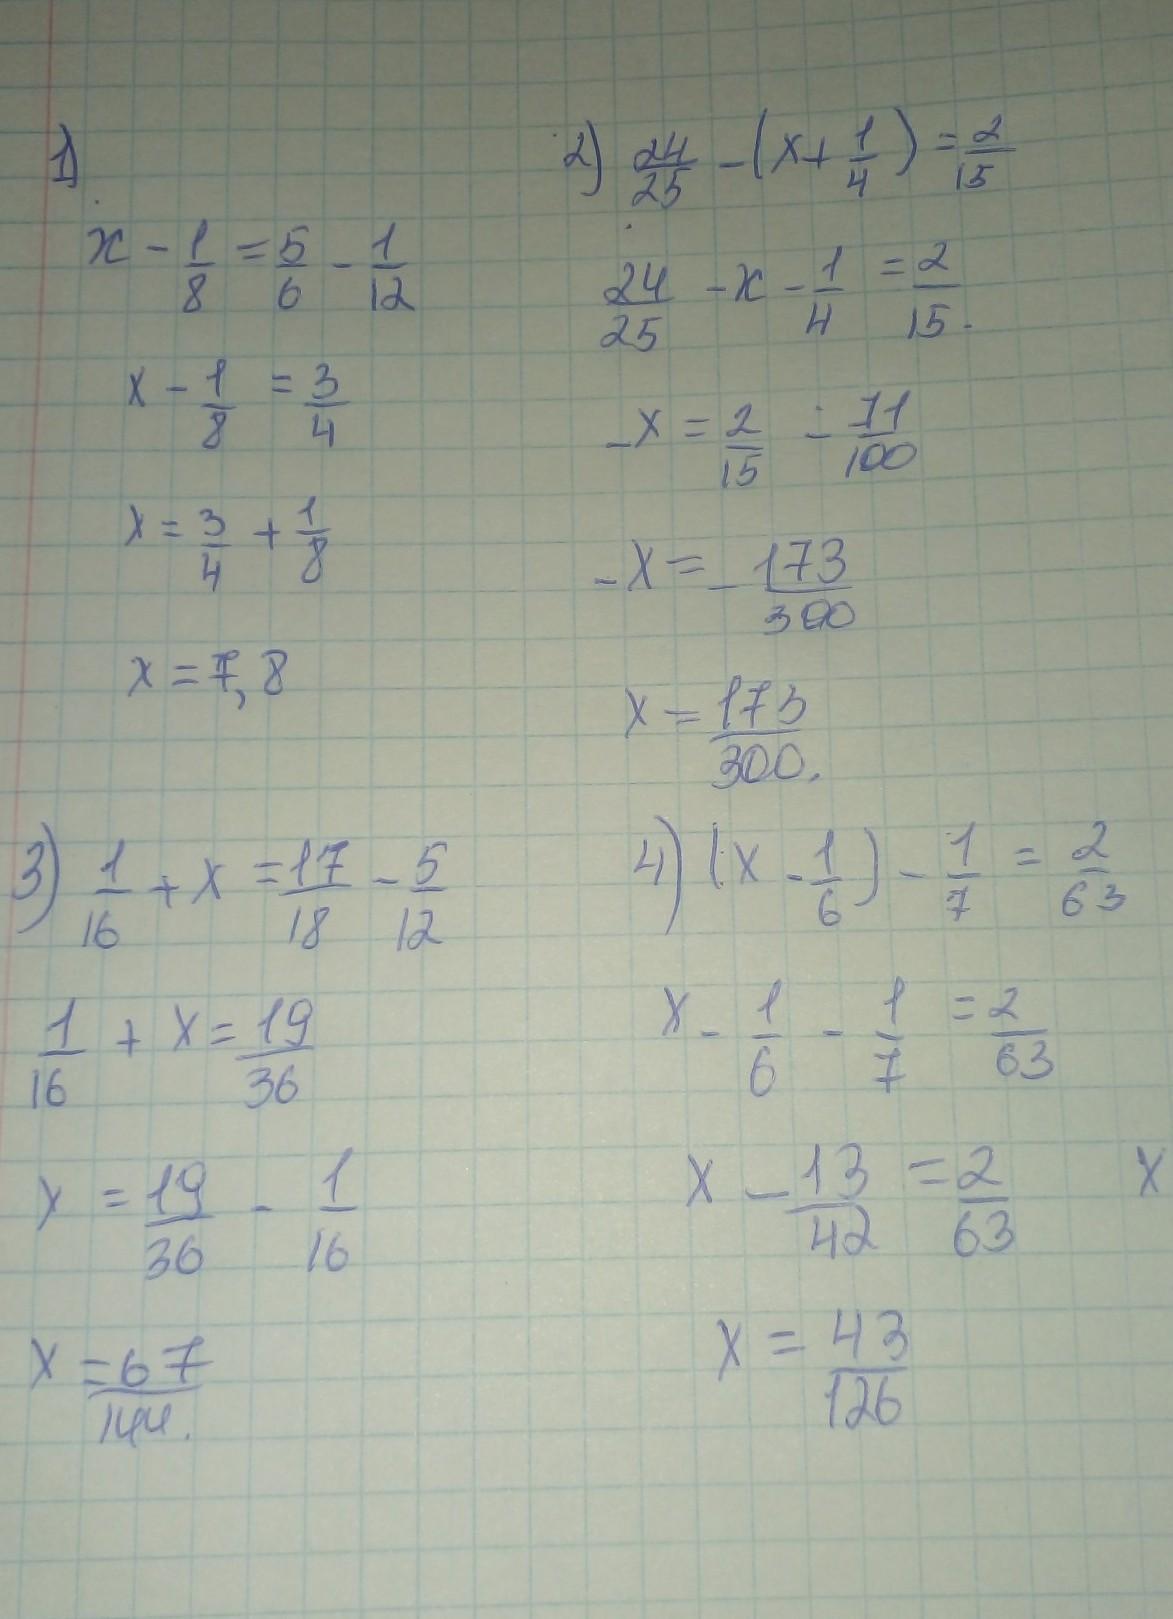 1)
x - 1/8 = 5/6 - 1/12
x - 1/8 = 3/4
x = 3/4 + 1/8
x = 7,8
2) 24/25 - (x + 1/4) = 2/15
24/25 - x - 1/4 = 2/15.
-x = 2/15 - 71/100
-x = - 173/300
x = 173/300.
3) 1/16 + x = 17/18 - 5/12
1/16 + x = 19/36
x = 19/36 - 1/16
x = 67/144.
4) (x - 1/6) - 1/7 = 2/63
x - 1/6 - 1/7 = 2/63
x - 13/42 = 2/63 x
x = 43/126